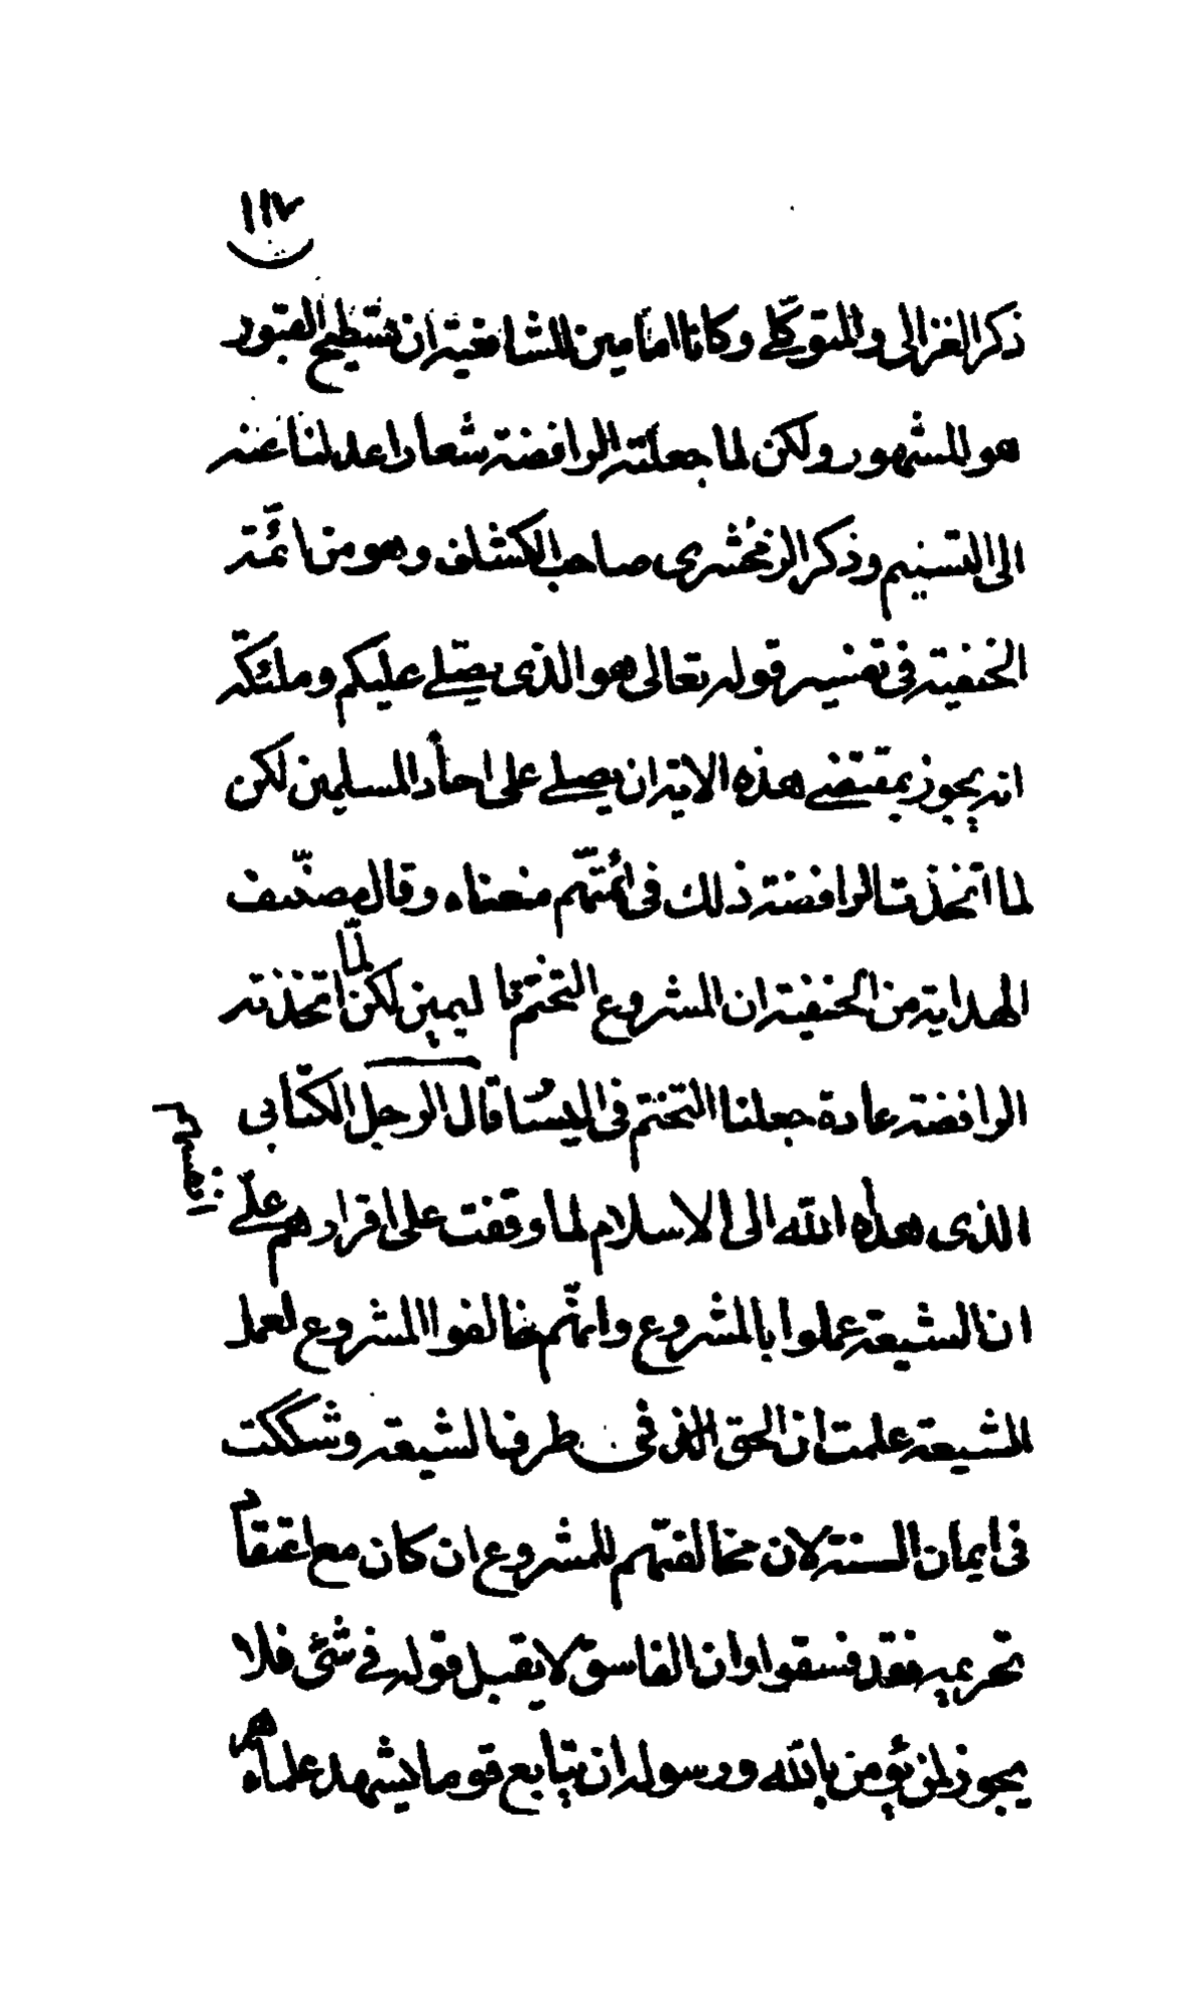 ١١٧
ذكر الغزالى والمتوكلى وكانا امامين للشافعية ان تسطيح القبور
هو المشهور ولكن لما جعلته الرافضة شعارا عدلنا عنه
الى التسنيم وذكر الزمخشرى صاحب الكشاف وهو من ائمّة
الحنفية فى تفسير قوله تعالى هو الذى يصلّى عليكم وملئكته
انه يجوز بمقتضى هذه الاية ان يصلى على احاد المسلمين لكن
لما اتخذت الرافضة ذلك فى ائمّتهم منعناه وقال مصنّف
الهداية من الحنفية ان المشروع التختم فا ليمين لكن لمّا اتخذته
الرافضة عادة جعلنا التختم فى اليسار قال الرجل الكتابى
الذى هداه الله الى الاسلام لما وقفت على اقرارهم على انفسهم
ان الشيعة عملوا بالمشروع وانّهم خالفوا المشروع لعمل
الشيعة علمت ان الحق الذى فى طرف الشيعة وشككت
فى ايمان السنة لان مخالفتهم للمشروع ان كان مع اعتقادهم
تحريمه فقد فسقوا وان الفاسق لا يقبل قوله فى شئ فلا
يجوز لمن يؤمن بالله ورسوله ان يتابع قوما يشهد علماؤهم